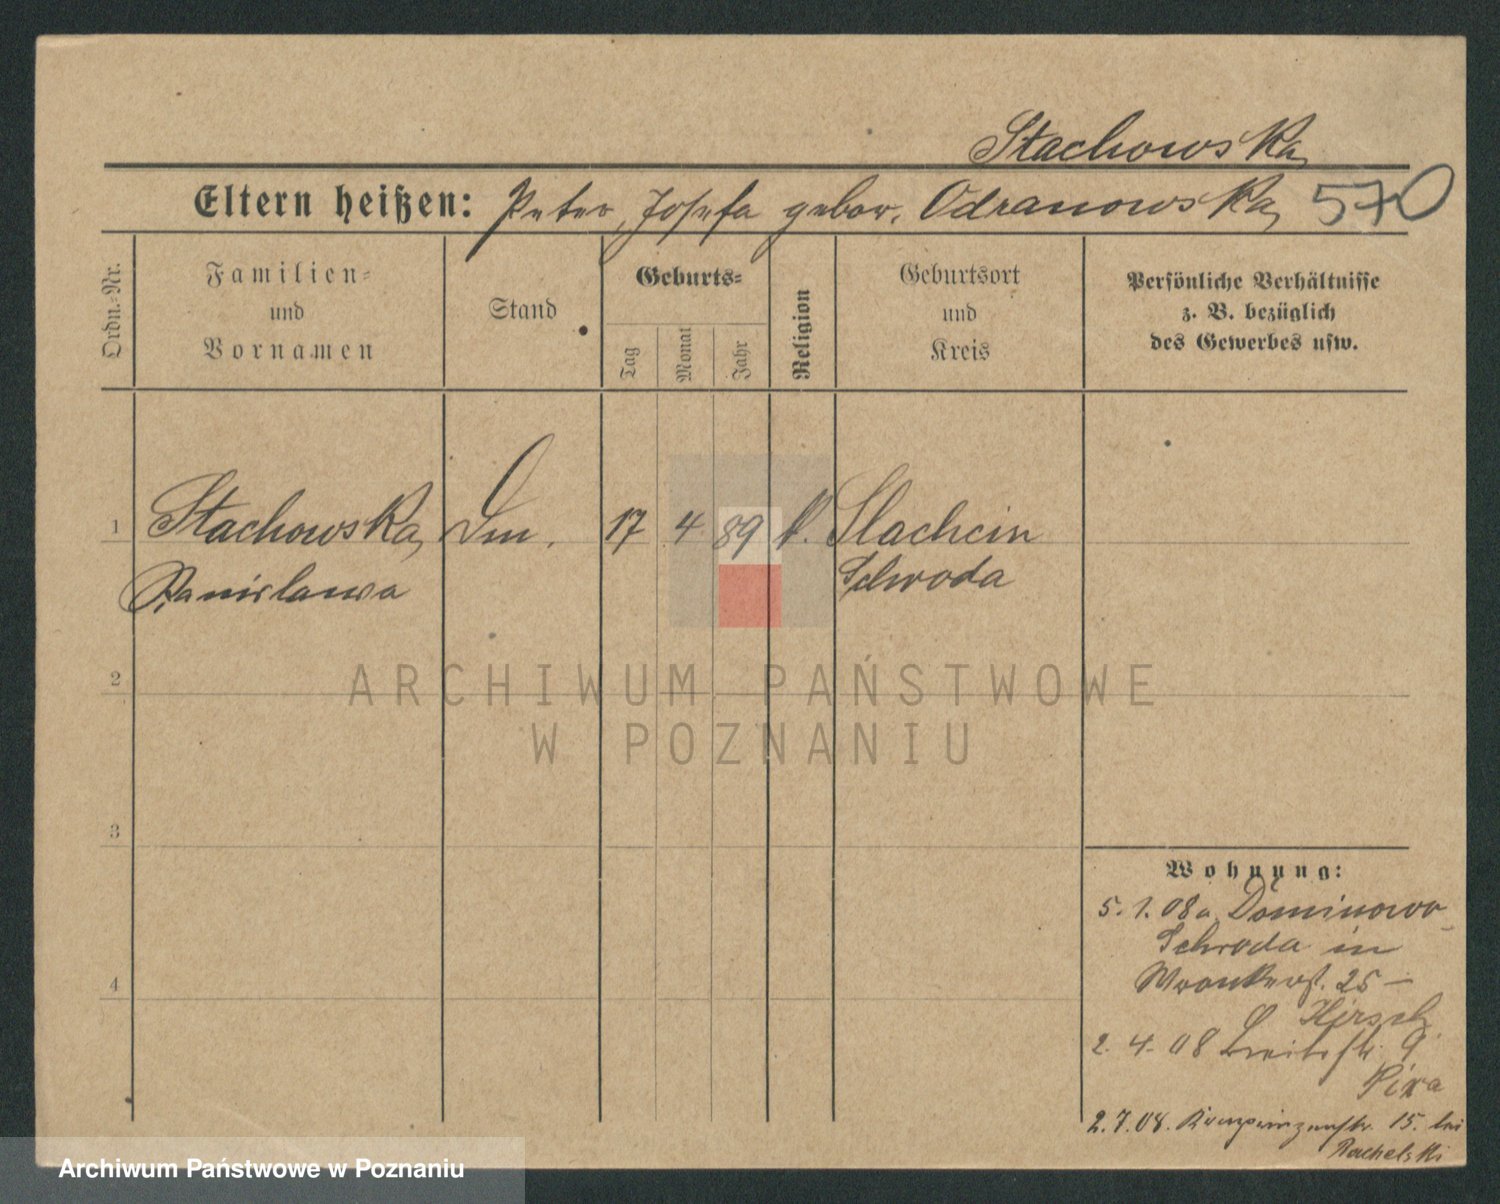 Stachowska
Eltern heißen: Peter, Josefa gebor. Odranowska 570
Ordn.=Nr.
Familien=
und
Vornamen
Stand
Geburts=
Tag
Monat
Jahr
Religion
Geburtsort
und
Kreis
Persönliche Verhältnisse
z. B. bezüglich
des Gewerbes usw.
1 Stachowska 17 4 89 k. Slachcin
Stanislawa Schroda
ARCHIWUM PAŃSTWOWE
2
W POZNANIU
3
Wohnung:
5. 1. 08 a. Dominowo
Schroda in
4 Wronkerst. 25 –
Hirsch
2. 4. 08 Breitestr. 9
Pixa
2. 7. 08. 15. bei
Rachelski
Archiwum Państwowe w Poznaniu